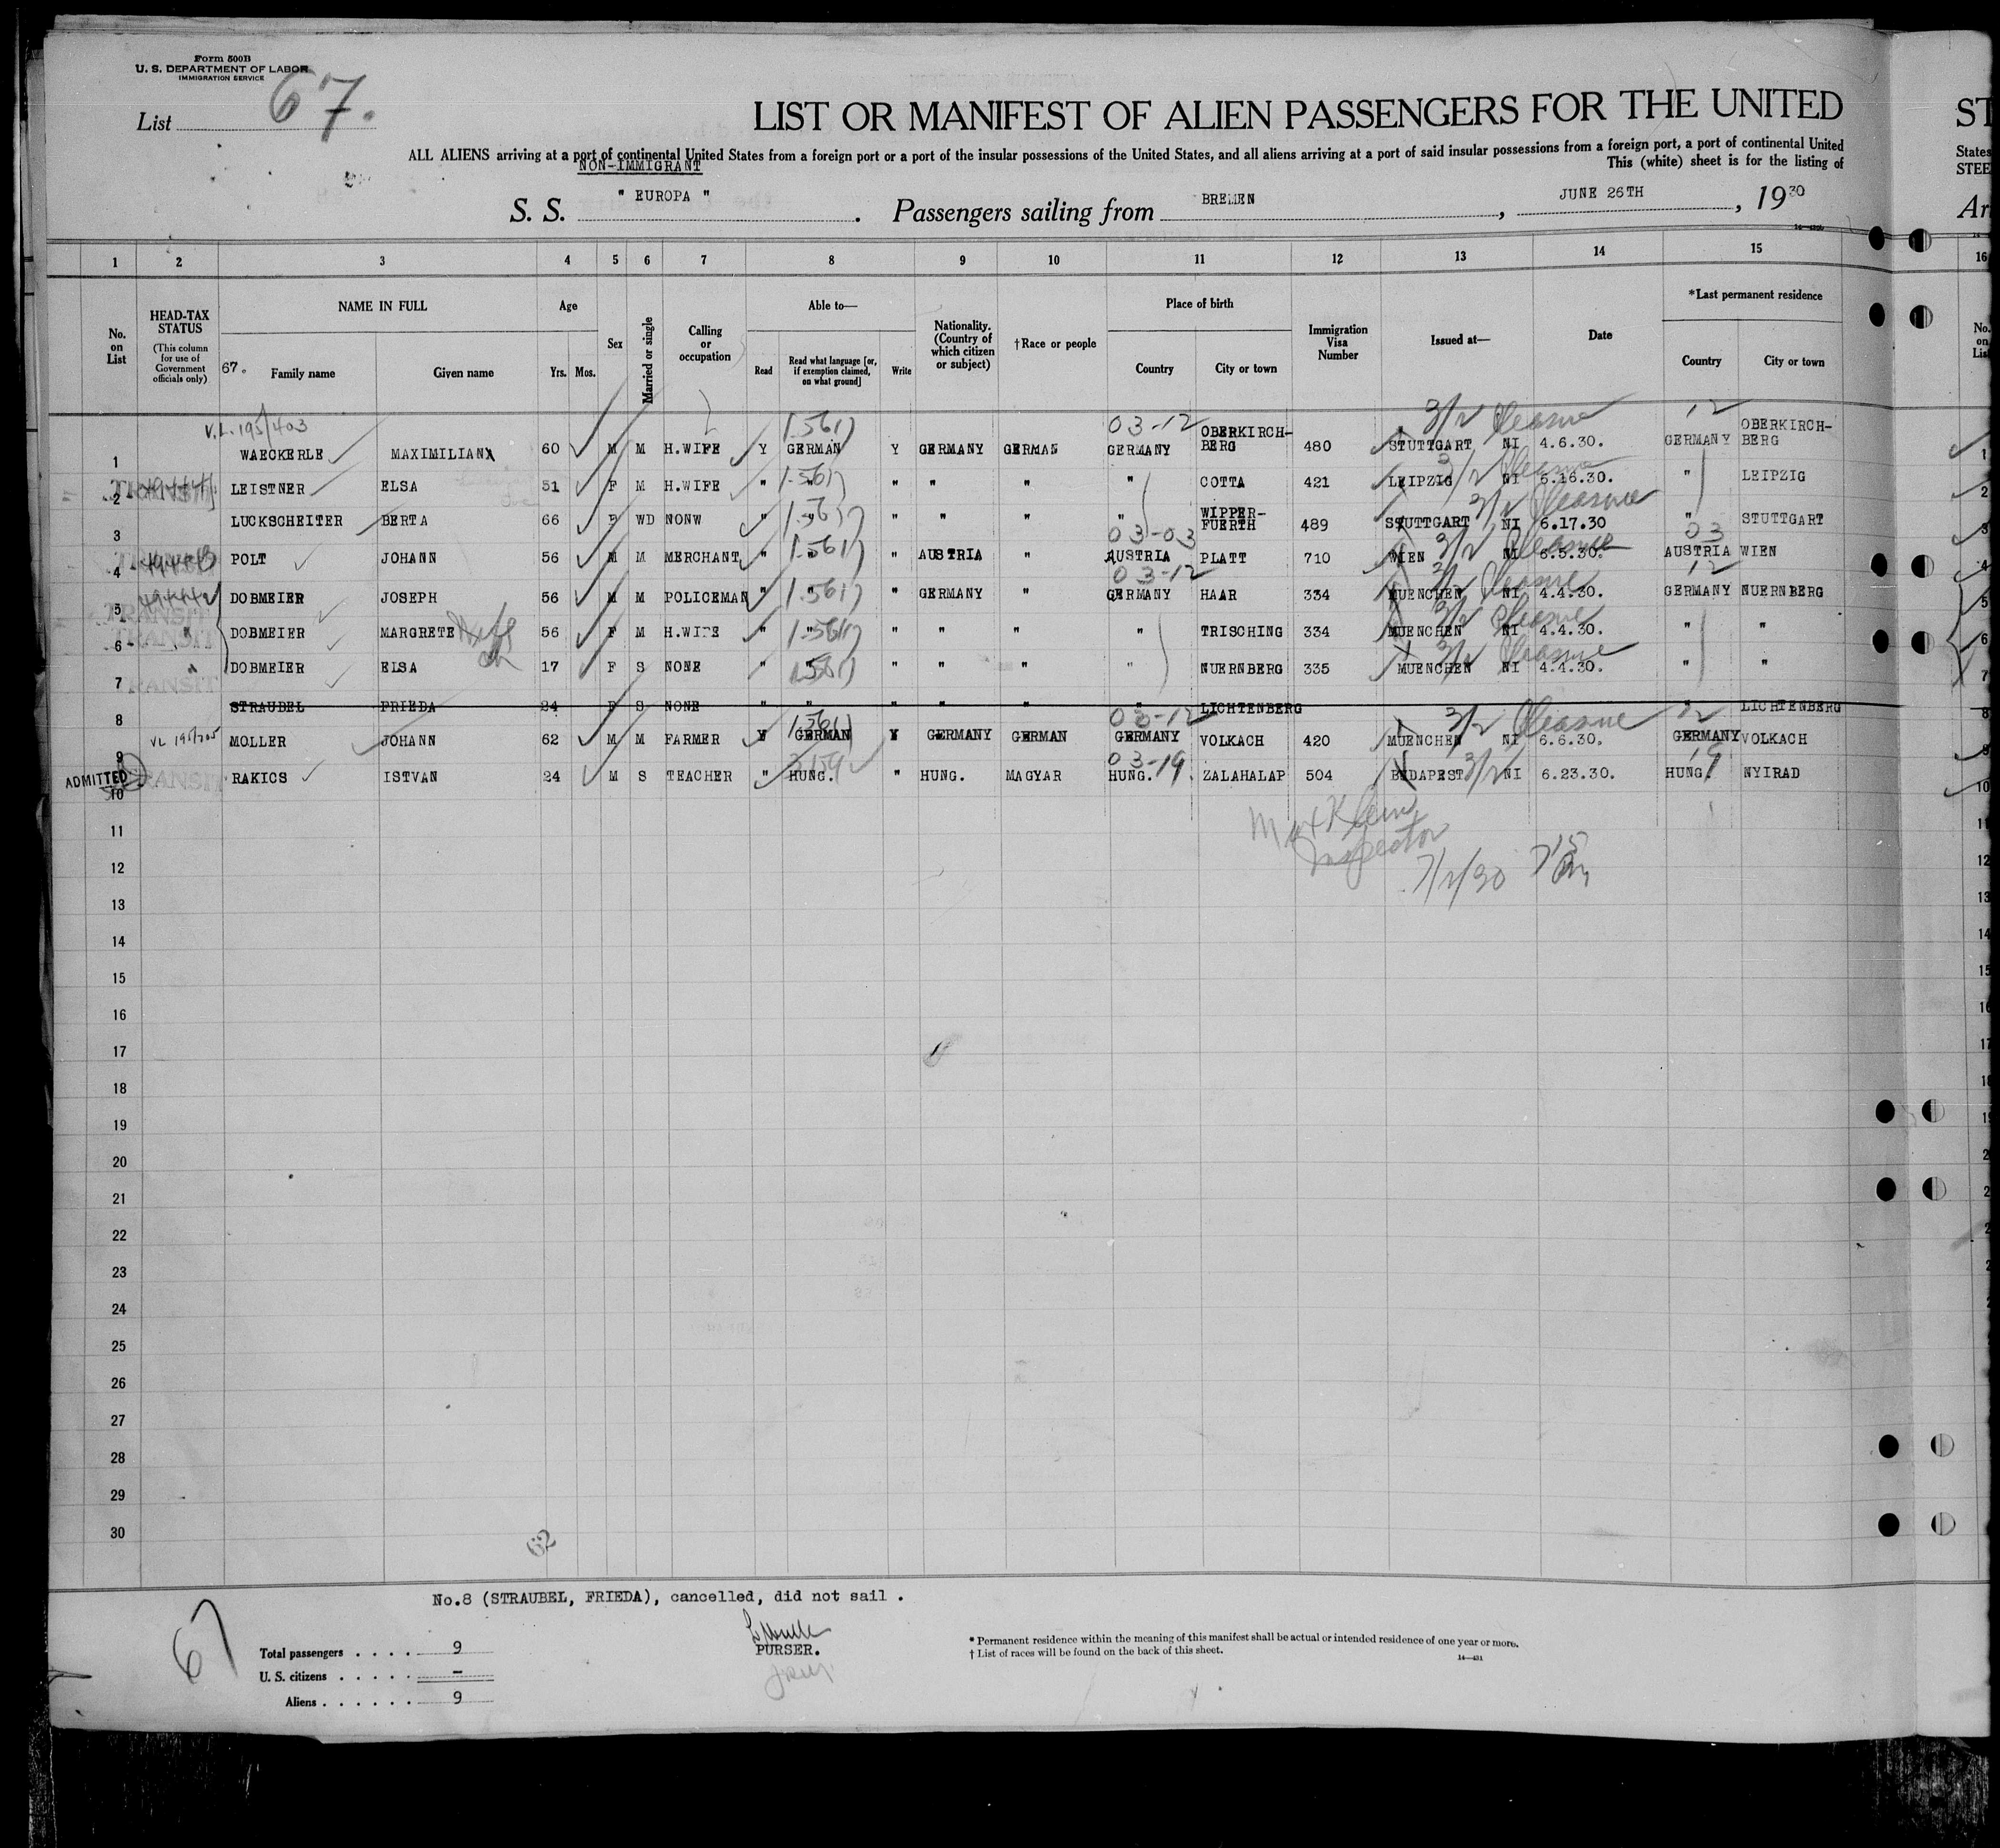 Form 500B
U. S. DEPARTMENT OF LABOR
IMMIGRATION SERVICE
List 67.
LIST OR MANIFEST OF ALIEN PASSENGERS FOR THE UNITED
ST
ALL ALIENS arriving at a port of continental United States from a foreign port or a port of the insular possessions of the United States, and all aliens arriving at a port of said insular possessions from a foreign port, a port of continental United
States
NON-IMMIGRANT
This (white) sheet is for the listing of
STEE
S. S. " EUROPA " . Passengers sailing from BREMEN , JUNE 26TH , 1930
1 2 3 4 5 6 7 8 9 10 11 12 13 14 15 16
No. on List
HEAD-TAX STATUS
(This column for use of Government officials only)
NAME IN FULL
67. Family name Given name
Age
Yrs. Mos.
Sex
Married or single
Calling or occupation
Able to—
Read Read what language [or, if exemption claimed, on what ground] Write
Nationality. (Country of which citizen or subject)
†Race or people
Place of birth
Country City or town
Immigration Visa Number
Issued at—
Date
*Last permanent residence
Country City or town
No. on List
V.L. 195/403 1.5617 03-12 3/2 Pleasure 12
1 WAECKERLE MAXIMILIAN 60 M M H.WIFE Y GERMAN Y GERMANY GERMAN GERMANY OBERKIRCH-BERG 480 STUTTGART NI 4.6.30. GERMANY OBERKIRCH-BERG 1
2 TRANSIT LEISTNER ELSA 51 F M H.WIFE " " " " " " COTTA 421 LEIPZIG NI 6.16.30. " LEIPZIG 2
3 LUCKSCHEITER BERTA 66 F WD NONW " " " " " " WIPPER-FUERTH 489 STUTTGART NI 6.17.30 " STUTTGART 3
03-03 03
4 TRANSIT POLT JOHANN 56 M M MERCHANT " " " AUSTRIA " AUSTRIA PLATT 710 WIEN NI 6.5.30. AUSTRIA WIEN 4
03-12 12
5 TRANSIT DOBMEIER JOSEPH 56 M M POLICEMAN " " " GERMANY " GERMANY HAAR 334 MUENCHEN NI 4.4.30. GERMANY NUERNBERG 5
6 TRANSIT DOBMEIER MARGRETE Wife 56 F M H.WIFE " " " " " " TRISCHING 334 MUENCHEN NI 4.4.30. " " 6
7 TRANSIT DOBMEIER ELSA ch 17 F S NONE " " " " " " NUERNBERG 335 MUENCHEN NI 4.4.30. " " 7
8 STRAUBEL FRIEDA 24 F S NONE " " " " " " LICHTENBERG " LICHTENBERG 8
VL 195/705 03-12 3/2 Pleasure 12
9 MOLLER JOHANN 62 M M FARMER Y GERMAN Y GERMANY GERMAN GERMANY VOLKACH 420 MUENCHEN NI 6.6.30. GERMANY VOLKACH 9
03-19 3/2 19
ADMITTED 10 TRANSIT RAKICS ISTVAN 24 M S TEACHER " HUNG. " HUNG. MAGYAR HUNG. ZALAHALAP 504 BUDAPEST NI 6.23.30. HUNG. NYIRAD 10
Max Klein
Inspector
7/2/30
11
12
13
14
15
16
17
18
19
20
21
22
23
24
25
26
27
28
29
30
62
No.8 (STRAUBEL, FRIEDA), cancelled, did not sail .
67
PURSER.
Total passengers . . . . 9
U. S. citizens . . . . . —
Aliens . . . . . . 9
* Permanent residence within the meaning of this manifest shall be actual or intended residence of one year or more.
† List of races will be found on the back of this sheet.
14—431